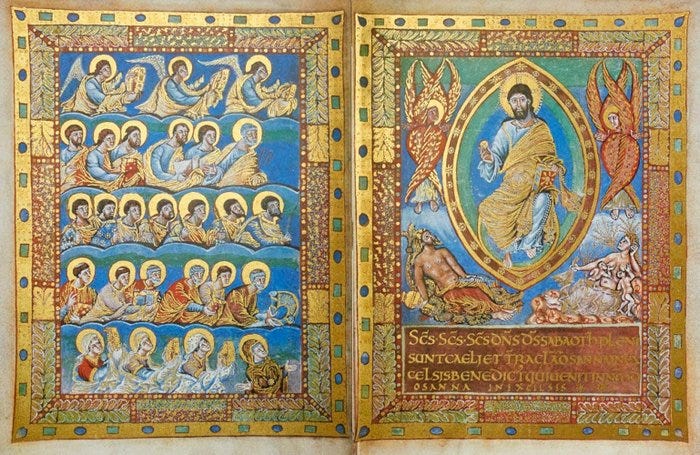 SC̄S·SC̄S·SC̄S DNS DS SABAOTH PLENI
SUNT CAELI ET TRA GLA OSANNA IN EX
CELSIS BENEDICT QUI UENIT IN
OSANNA IN EXCELSIS